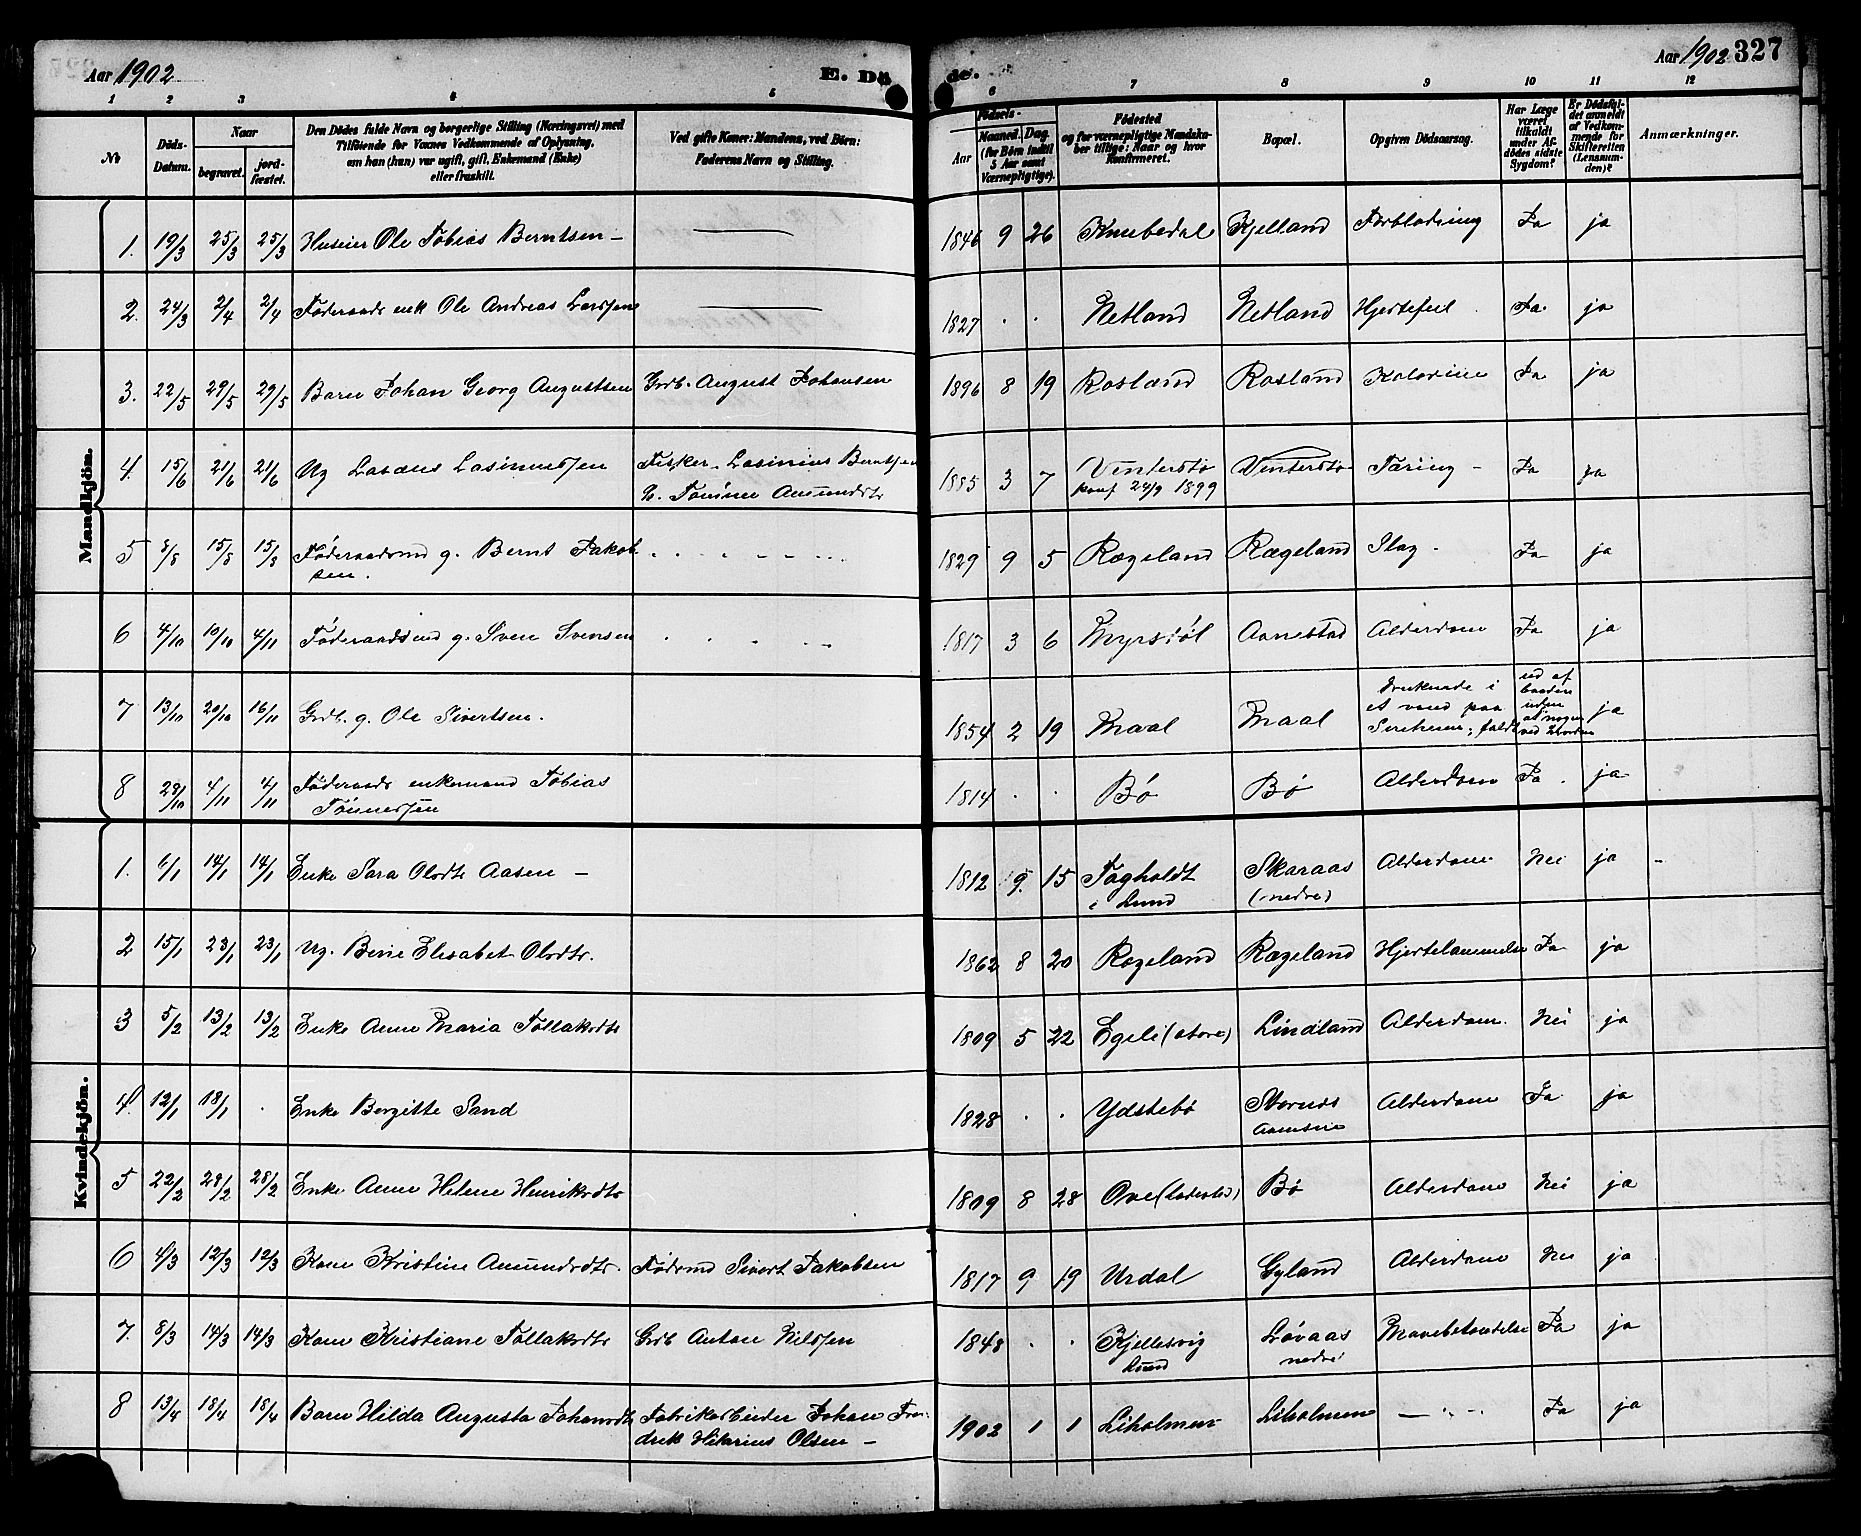 Aar 1902
E. Döde.
Aar 1902 327
1 2 3 4 5 6 7 8 9 10 11 12
No
Döds-Datum.
Naar
begravet.
jordfæstet.
Den Dödes fulde Navn og borgerlige Stilling (Næringsvei) med
Tilföiende for Voxnes Vedkommende af Oplysning,
om han (hun) var ugift, gift, Enkemand (Enke)
eller fraskilt.
Ved gifte Koner: Mandens, ved Börn:
Faderens Navn og Stilling.
Fødsels-
Aar
Maaned. Dag.
(for Børn indtil
5 Aar samt
Værnepligtige).
Födested
og for værnepligtige Mandska-
ber tillige: Naar og hvor
konfirmeret.
Bopæl.
Opgiven Dödsaarsag.
Har Læge
været
tilkaldt
under Af-
dödes sidste
Sygdom?
Er Dödsfal-
det anmeldt
af Vedkom-
mende for
Skifteretten
(Lensman-
den)?
Anmærkninger.
Mandkjön.
1. 19/3 25/3 25/3 Huseier Ole Tobias Berntsen – 1846 9 26 Knubedal Kjelland Forblødning Ja ja
2. 24/3 2/4 2/4 Føderaads enk Ole Andreas Larssen 1827 . . Netland Netland Hjertefeil. Ja. ja
3. 22/5 29/5 29/5 Barn Johan Georg Augustsen Grdb. August Johansen 1896 8 19 Rosland Rosland Ja ja
4. 15/6 21/6 21/6 Ug Lasinussen Fisker Lasinius Berntsen
Amundsdtr 1885 3 7 Vinterstø Vinterstø Tæring – Ja ja
konf 24/9 1899
5 8/8 15/8 15/8 Føderaadsmd g. Bernt Jakob
sen. 1829 9 5 Rægeland Rægeland Slag. Ja ja
6 4/10 10/10 4/11 Føderaadsmd g. Sven Svensen 1817 3 6 Myrstøl Aanestad Alderdom Ja ja
7 13/10 20/10 16/11 Grdb. g. Ole Sivertsen. 1854 2 19 Maal Maal druknede i
et vand paa
faldt ud af
baaden
uden
at nogen
ved hvordan ja
8 29/10 4/11 4/11 Føderaads enkemand Tobias
Tønnessen 1814 . . Bø Bø Alderdom Ja. ja
Kvindekjön.
1. 6/1 14/1 14/1 Enke Sara Olsdtr Aasen – 1812 9. 15 Fagholdt
i Lund Skaraas
(nedre) Alderdom Nei ja –
2 15/1 23/1 23/1 Ug. Berte Elisabet Olsdtr. 1862 8 20 Rægeland Rægeland Hjertelammelse Ja ja
3 5/2 13/2 13/2 Enke Anne Maria Tollaksdtr 1809 5 22 Egeli (store) Lindland Alderdom. Nei ja
4. 12/1 18/1 . Enke Bergitte Sand 1828 . . Ydstebø Stornes
Aamsine Alderdom Ja ja
5 22/2 28/2 28/2 Enke Anne Helene Henriksdtr 1809 8 28 Ove (ladested) Bø Alderdom Nei ja
6 4/3 12/3 12/3 Kone Kristine Amundsdtr. Fødrmd Sivert Jakobsen 1817 9 19 Urdal Gyland Alderdom Nei ja
7. 8/3 14/3 14/3 Kone Kristiane Tollaksdtr Grdb Anton Nilssen 1848 . . Kjellesvig
Lund Løvaas
nedre Mavebetændelse Ja ja
8 13/4 18/4 18/4 Barn Hilda Augusta Johansdtr Fabrikarbeider Johan Fre-
drik Hilarius Olsen – 1902 1 1 Liholmen Liholmen – " – Ja ja